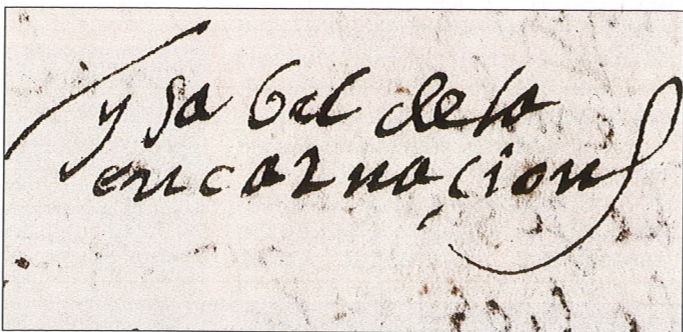 ysabel de la
encarnaçion